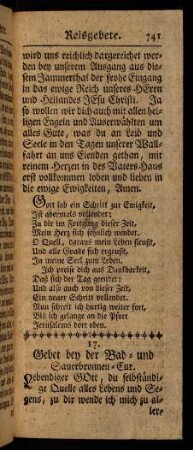 Reisgebete. 741
wird uns reichlich dargereichet wer-
den bey unserem Ausgang aus die-
sem Jammerthal der frohe Eingang
in das ewige Reich unseres HErrn
und Heilandes JEsu Christi. Ja
so wollen wir dich auch mit allen hei-
ligen Engeln und Auserwählten um
alles Gute, was du an Leib und
Seele in den Tagen unserer Wall-
fahrt an uns Elenden gethan, mit
reinem Herzen in des Vaters-Haus
erst vollkommen loben und lieben in
die ewige Ewigkeiten, Amen.
Gott lob ein Schritt zur Ewigkeit,
Ist abermals vollendet:
Zu dir im Fortgang dieser Zeit,
Mein Herz sich sehnlich wendet.
O Quell, daraus mein Leben fleußt,
Und alle Gnade sich ergeußt,
In meine Seel zum Leben.
Ich preise dich aus Dankbarkeit,
Daß sich der Tag geendet:
Und also auch von dieser Zeit,
Ein neuer Schritt vollendet.
Nun schreit ich hurtig weiter fort,
Bis ich gelange an die Pfort
Jerusalems dort oben.
17.
Gebet bey der Bad- und
Sauerbronnen-Cur.
Lebendiger GOtt, du selbständi-
ge Quelle alles Lebens und Se-
gens, zu dir wende ich mich zu al-
ler-